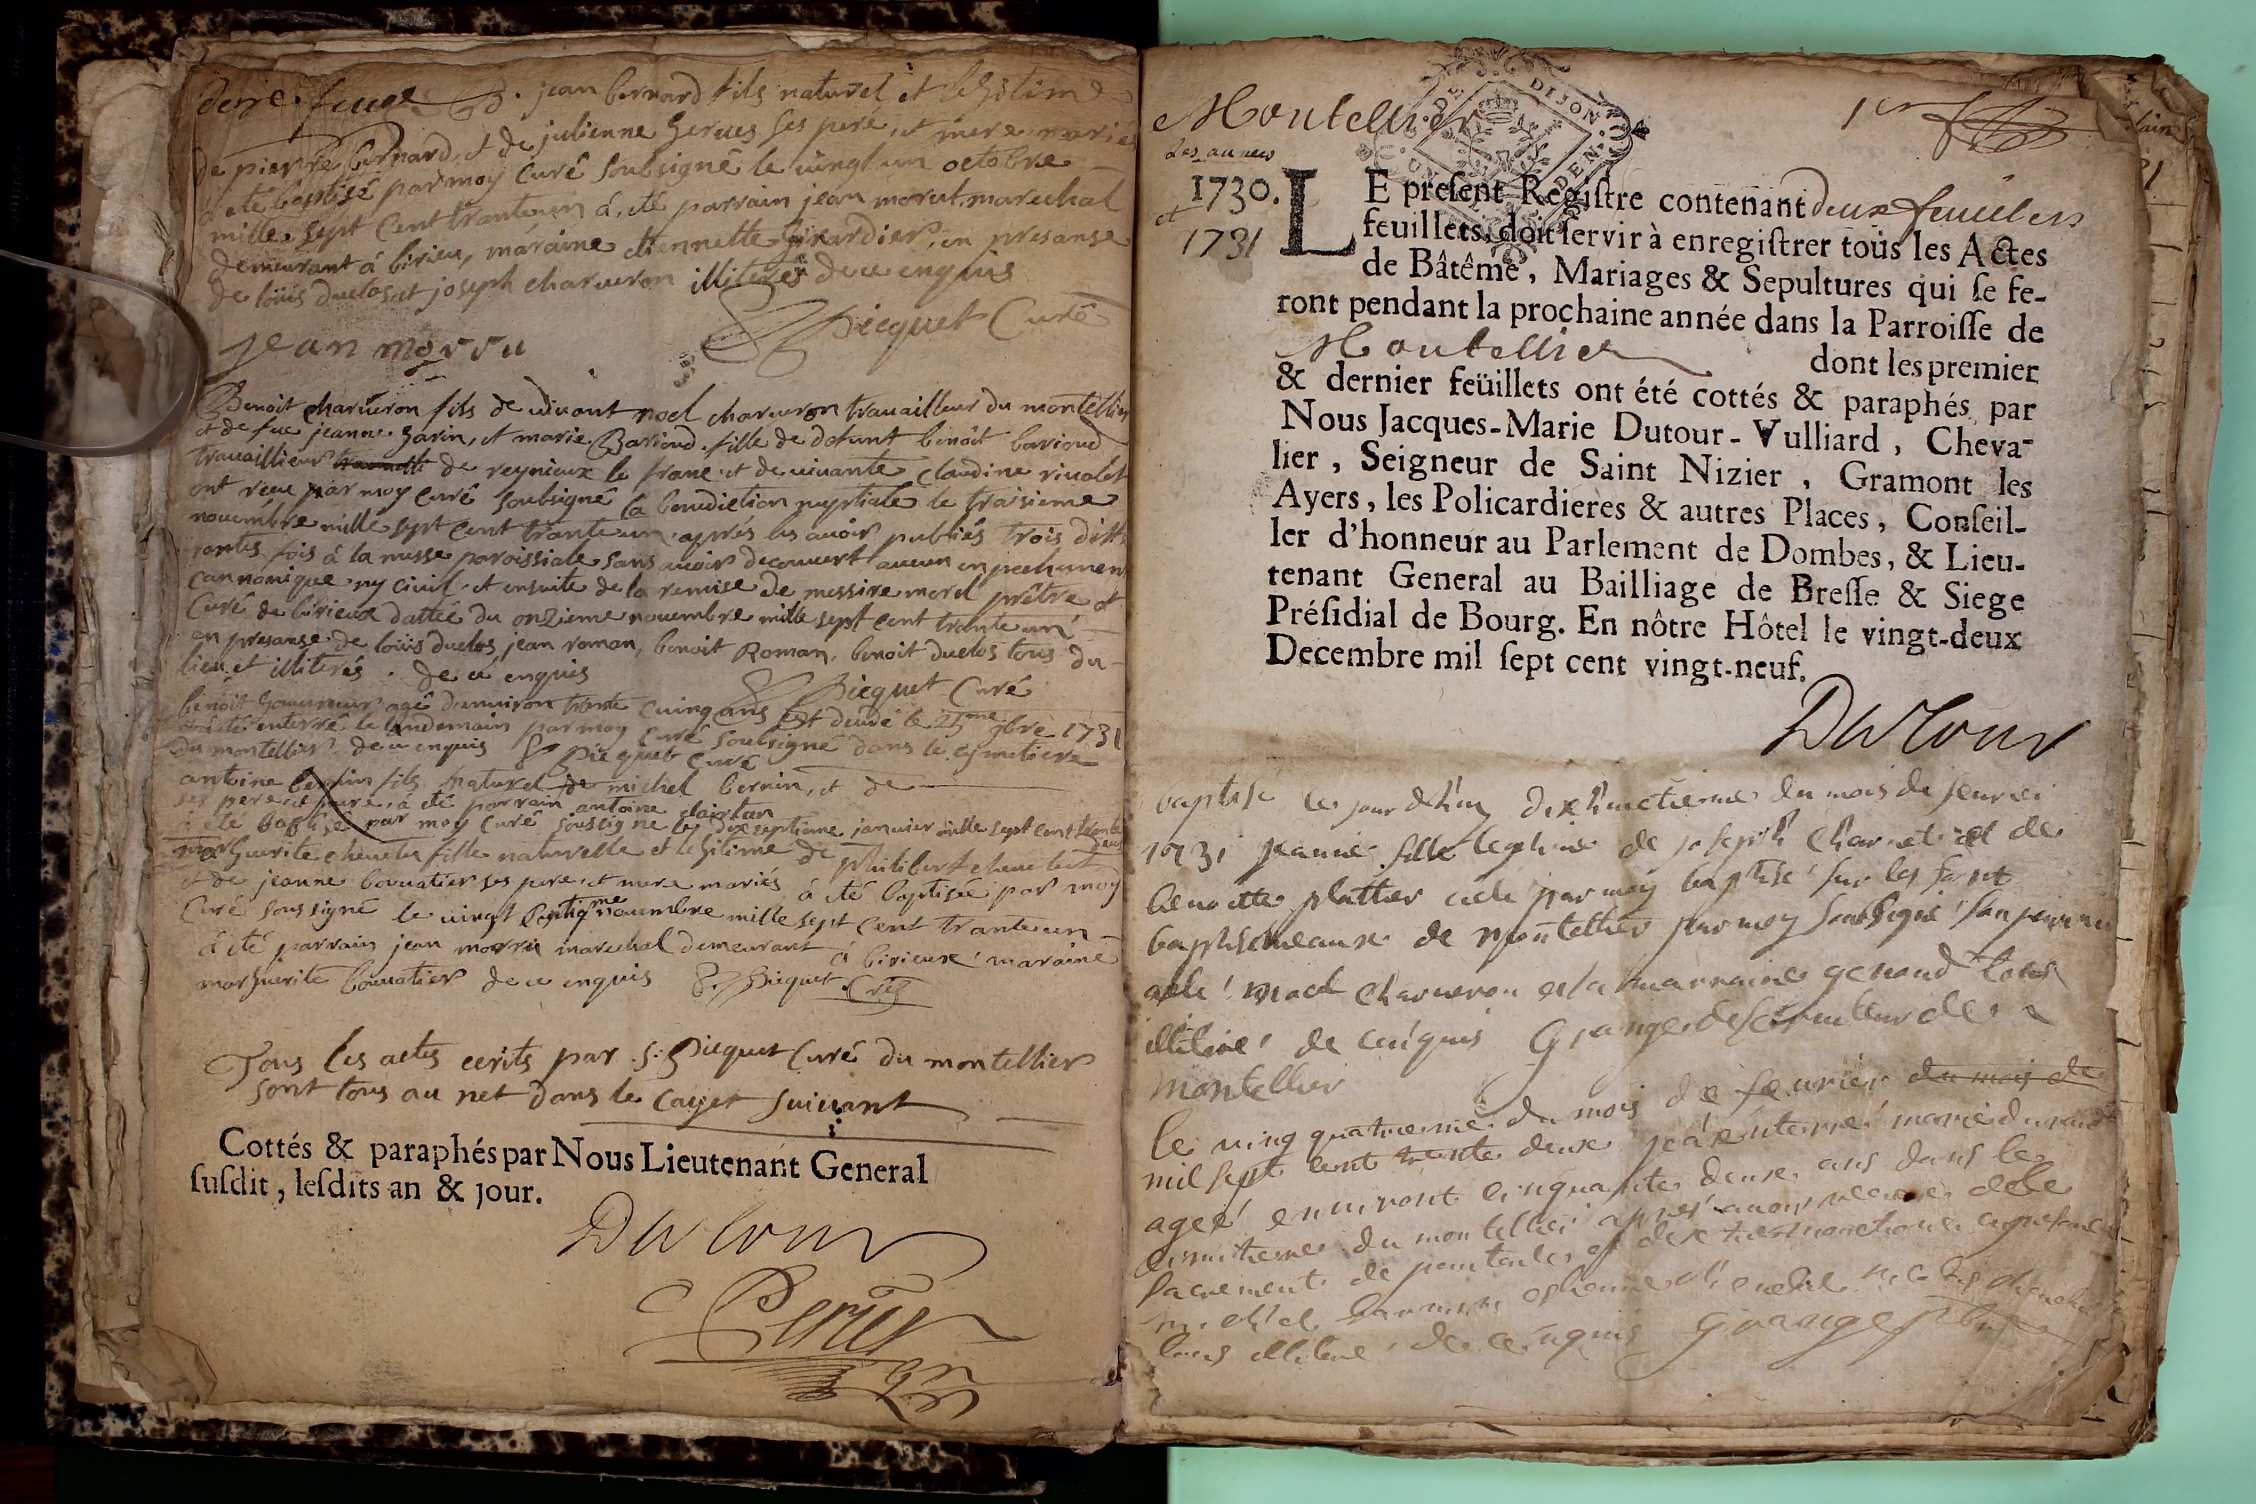 jean bernard fils naturel et legitime
de pierre bernard, et de julienne gerues ses pere, et mere mariés
à eté baptisé par moy curé soubsigné le vingt un octobre
mille sept cent trante un à, eté parrain jean morut marechal
demeurant à birieu, maraine etiennette girardier, en presanse
de loüis duclos et joseph charueron illiterés de ce enquis
Picquet Curé
jean morru
Benoit charueron fils de viuant noel charueron trauailleur du montellier
et de fue jeanne garin, et marie Barioud fille de defunt benoit barioud
trauaillieur de reynieux le franc et de viuante claudine riuolet
ont reçu par moy curé soubsigné la benediction nuptiale le traisieme
nouembre mille sept cent trante un, aprés les auoir publiés trois diffe
rantes fois à la messe paroissiale sans auoir decouuert aucun enpechement
cannonique ny ciuil, et ensuite de la remise de messire morel prêtre et
Curé de birieux dattée du onzieme nouembre mille sept cent trante un
en presanse de loüis duclos, jean roman, benoit Roman, benoit duclos tous du
lieu et illiterés de ce enquis
Picquet Curé
benoit agé danuiron trante cuinq ans est decedé le 9bre 1731
enterré le landemain par moy curé soubsigné dans le cymetiere
du montellier de ce enquis Picquet Curé
antoine bernin fils naturel de michel bernin, et de
ses pere, et mere, à eté parrain antoine
à eté baptisé par moy curé soussigné le dixseptieme januier mille sept cent trante deux
marguerite cheuelu fille naturelle et legitime de philibert cheuelut
et de jeanne bouuatier ses pere, et mere mariés à eté baptisée par moy
Curé soussigné le vingt septieme nouembre mille sept cent trante un
à eté parrain jean morru marechal demeurant à birieux, maraine
marguerite bouuatier de ce enquis Picquet Curé
Tous les actes ecrits par S. Picquet Curé du montellier
sont tous au net dans le cayer suiuant
Cottés & paraphés par Nous Lieutenant General
susdit, lesdits an & jour.
Dutour
Perier
Montellier
1er
Les annees
1730.
et
1731
LE present Registre contenant deux feuillets
feuillets, doit servir à enregistrer tous les Actes
de Bâtême, Mariages & Sepultures qui se fe-
ront pendant la prochaine année dans la Parroisse de
Montellier dont les premier
& dernier feüillets ont été cottés & paraphés par
Nous Jacques-Marie Dutour-Vulliard, Cheva-
lier, Seigneur de Saint Nizier, Gramont les
Ayers, les Policardieres & autres Places, Conseil-
ler d'honneur au Parlement de Dombes, & Lieu-
tenant General au Bailliage de Bresse & Siege
Présidial de Bourg. En nôtre Hôtel le vingt-deux
Decembre mil sept cent vingt-neuf.
Dutour
baptise le jour dixhuictieme du mois de feurier
1731 jeanne fille legitime de joseph Charnet et de
benoitte plattier par moy baptisé sur les font
baptismeaux de montellier par moy soubsigné
noel charueron et la marraine genaud tous
illiteré de ce enquis Grange deseruteur de
montellier
le ving quatrieme du mois de feurier du mois de
mil sept cent trente deux enterré marie durand
ageé enuiront cinquante deux ans dans le
cimitiere du montellier apres auoir
sacrement de et
michel
tous illiteré de ce enquis Grange